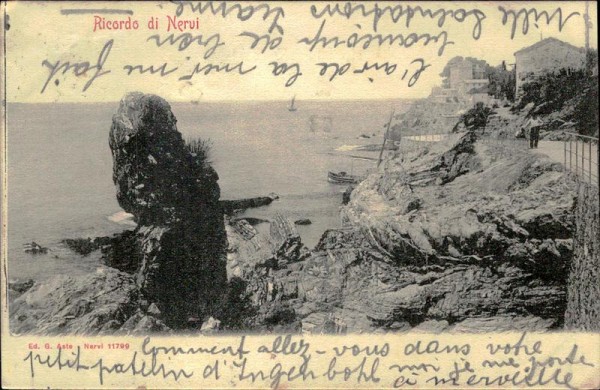 Ricordo di Nervi
Ed. G. Asta - Nervi 11799
Comment allez-vous dans votre
petit patelin d'Ingenbohl moi je me porte
à merveille
l'air de la mer me fait
beaucoup de bien
Mille Salutations Jeanne.